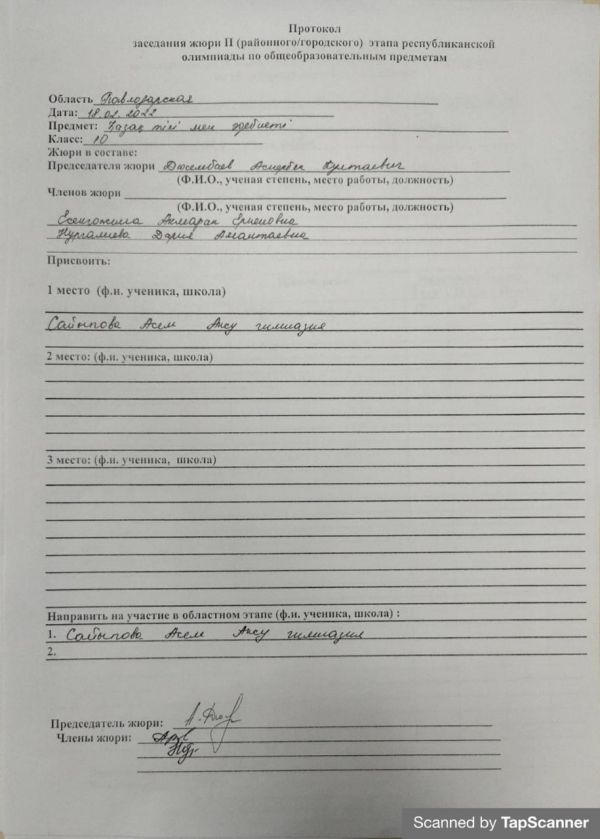 Протокол
заседания жюри II (районного/городского) этапа республиканской
олимпиады по общеобразовательным предметам
Область Павлодарская
Дата: 18.02.2022
Предмет: Қазақ тілі мен әдебиеті
Класс: 10
Жюри в составе:
Председателя жюри Дюсембаев
(Ф.И.О., ученая степень, место работы, должность)
Членов жюри
(Ф.И.О., ученая степень, место работы, должность)
Есенгожина Акмарал Ериковна
Нургалиева Дария Амантаевна
Присвоить:
1 место (ф.и. ученика, школа)
Сайыпова Асем Аксу гимназия
2 место: (ф.и. ученика, школа)
3 место: (ф.и. ученика, школа)
Направить на участие в областном этапе (ф.и. ученика, школа) :
1. Сайыпова Асем Аксу гимназия
2.
Председатель жюри:
Члены жюри:
Scanned by TapScanner